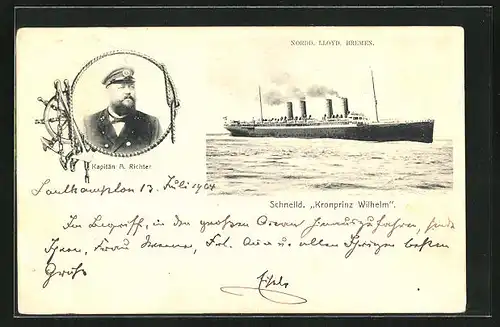 NORDD. LLOYD. BREMEN.
Kapitän A. Richter
Schnelld. „Kronprinz Wilhelm".
Southampton 13. Juli 1904
Im Begriff, in den großen Ocean hinauszufahren, sende
Ihnen, Frau Frl. Anna u. allen Ihrigen besten
Gruß